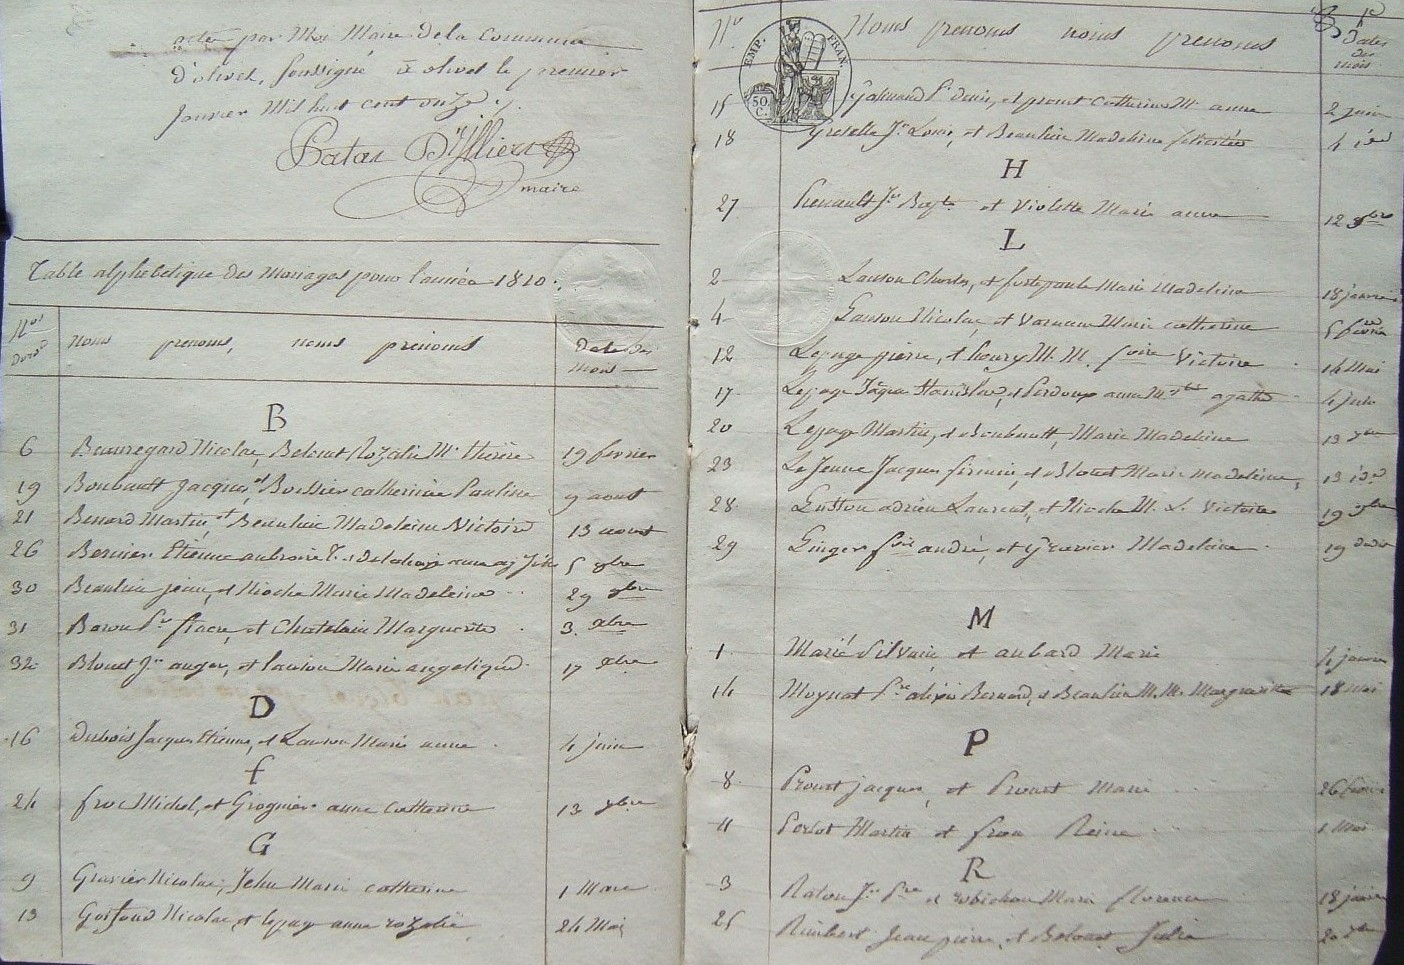 acte par Mr Maire de la Commune
d'olivet, soussigné à olivet le premier
janvier Mil huit cent onze.
Patas D'Illiers
maire
Table alphebetique des Mariages pour l'année 1810.
Nos
noms prenoms, noms prenoms
Date des
Mois
B
6 Beauregard Nicolas, Belouet Rozalie Mie 19 fevrier
19 Boubault Jacques, et Bossier catherine Pauline 9 aoust
21 Benard Martin et Beaulieu Madeleine Victoire 13 aoust
26 Bernier Etienne 5 9bre
30 Beaulieu jean, et Nioche Marie Madeleine 29 9bre
31 Baron Pre fiacre, et Chatelain Marguerite 3. Xbre
32 Blouet Jn auger, et Lauson Marie angelique 17 Xbre
D
16 Dubois Jacques Etienne, et Lauson Marie anne 4 juin
f
24 froc Michel, et Grognier anne catherine 13 9bre
G
9 Gravier Nicolas, Jehu Marie catherine 1 Mars
13 Nicolas, et lepage anne rozalie 24 Mai
Nos Noms prenoms noms prenoms
Dates
des
mois
EMP. FRAN.
50
C.
15 et prout Catherine Mie anne 2 juin
18 Grezelle Jn Louis, et Beaulieu Madeleine felicité 4 id
H
27 Henault Jn Bapte et Violette Marie anne 12 9bre
L
2 Lauson Charles, et Marie Madeleine 18 janvier
4 Lauson Nicolas, et Marie catherine 5 fevrier
12 Lepage pierre, et fleury M. M. Victoire 14 Mai
17 Lepage Jaque Stanislas, et Perdoux anne agathe 4 juin
20 Lepage Martin, et Boubault, Marie Madeleine 13
23 Le Jeune Jacques firmin, et Blouet Marie madeleine, 13 id
28 adrien Laurent, et Nioche M. L. Victoire 19 9bre
29 Ginger andré, et Gravier Madeleine 19
M
1 Marié Silvain et aubard Marie 4 janvier
14 Moynat Pre Bernard, et Beaulieu M. M. Marguerite 18 Mai
P
8 Proust jacques, et Proust Marie 26 fevrier
11 Porlot Martin et Reine 1 Mai
R
3 Raton Jn Pre et robichon Marie florence 18 janvier
25 Rimbert Jean pierre, et Belouet Julie 20